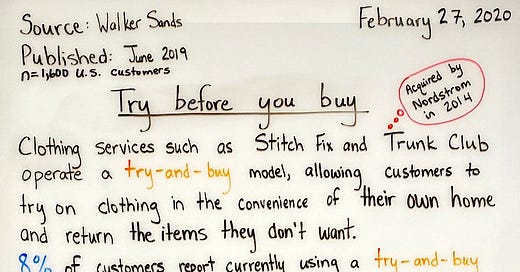 Source: Walker Sands
February 27, 2020
Published: June 2019
n=1,600 U.S. customers
Try before you buy
Acquired by
Nordstrom
in 2014
Clothing services such as Stitch Fix and Trunk Club
operate a try-and-buy model, allowing customers to
try on clothing in the convenience of their own home
and return the items they don't want.
8% of customers report currently using a try-and-buy